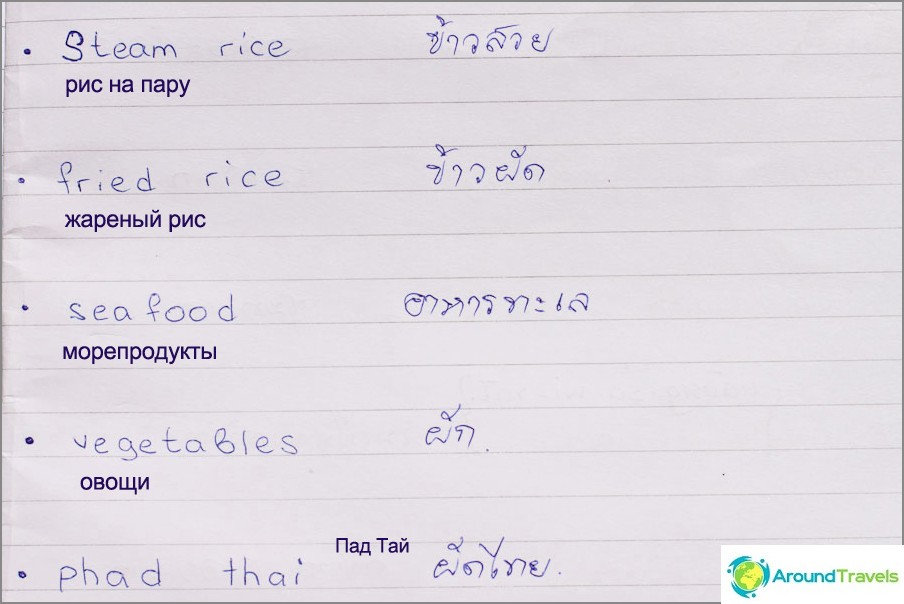 • Steam rice ข้าวสวย
рис на пару
• fried rice ข้าวผัด
жареный рис
• seafood อาหารทะเล
морепродукты
• vegetables ผัก.
овощи
Пад Тай
• phad thai ผัดไทย.
AroundTravels